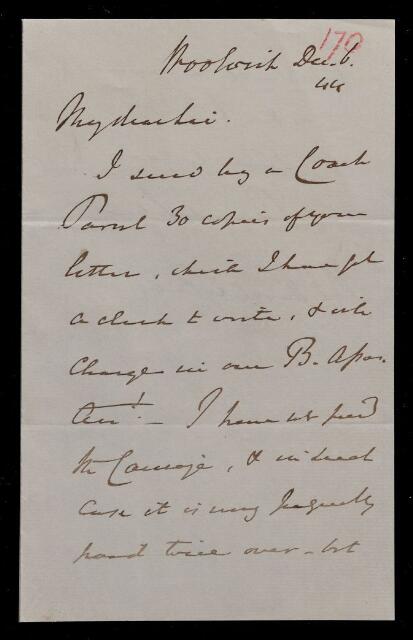 170
Woolwich Dec. 6.
44
My dear Sir.
I send by a Coach
Parcel 30 copies of your
letter, which I have got
a clerk to write, & will
charge in our B. Apa-
tus! — I have not paid
the Carriage, & in such
case it is very frequently
paid twice over - but